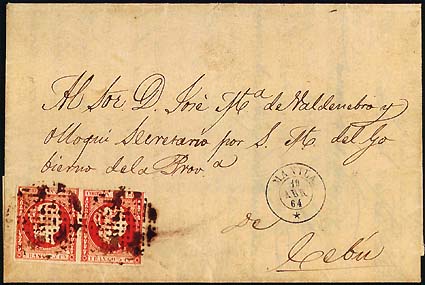 Al Sor. D. José Ma. de Valdenebro y
Olloqui Secretario por S. M. del Go
bierno de la Prova
MANILA
19
ABR
64
de
Cebú